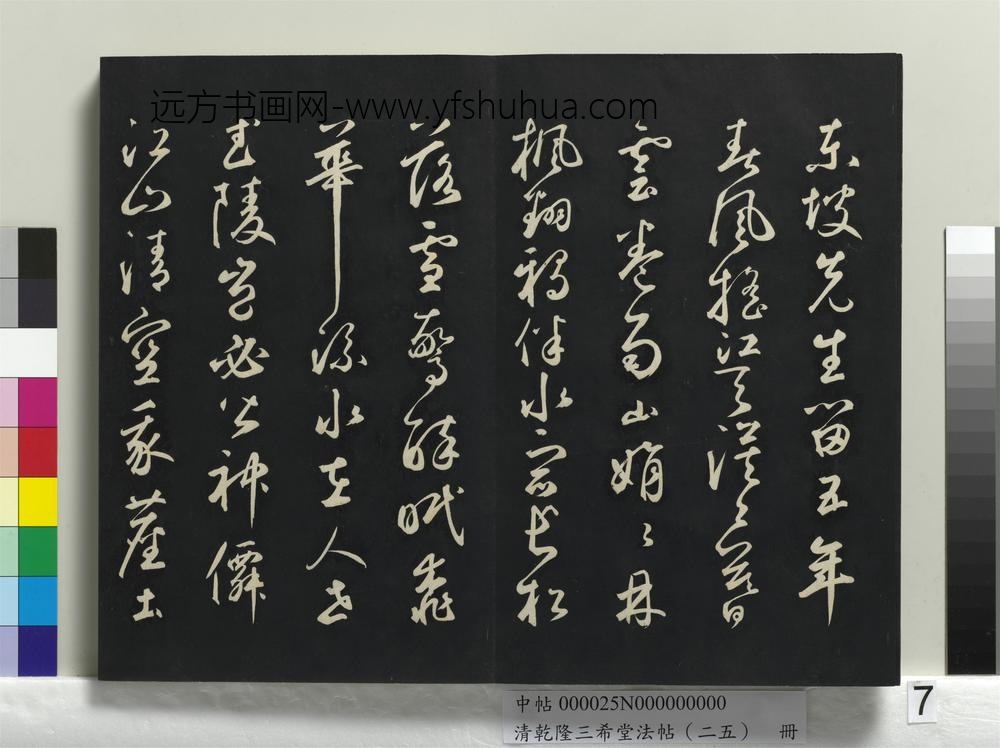 東坡先生留五年
春風搖江天漠〻暮
雲卷雨山娟〻丹
楓翻鴉伴水宿長松
落雪驚醉眠桃
華流水在人世
武陵豈必皆神僊
江山清空我塵土
远方书画网-www.yfshuhua.com
中帖 000025N000000000
清乾隆三希堂法帖（二五） 冊
7